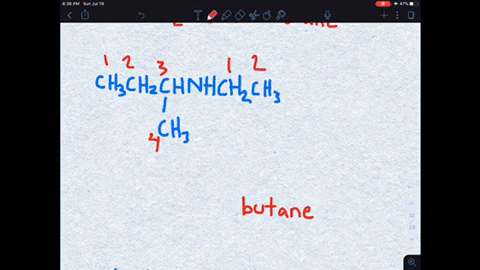 6:36 PM Sun Jul 19
47%
1 2 3 1 2
CH₃CH₂CHNHCH₂CH₃
4 CH₃
butane